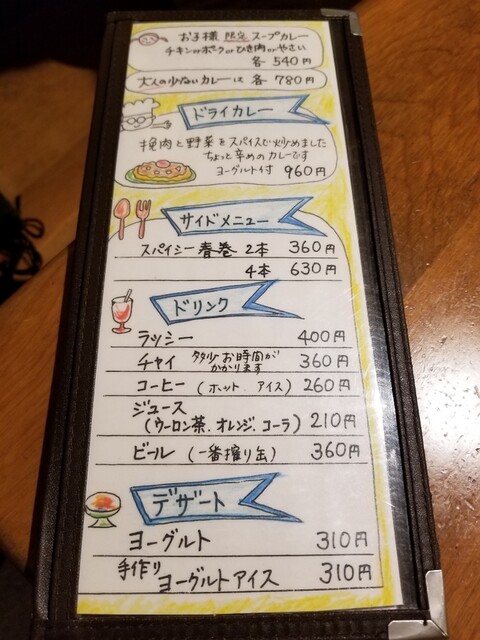 お子様 限定 スープカレー
チキンorポークorひき肉orやさい
各 540円
大人の少ないカレーは 各 780円
ドライカレー
挽肉と野菜をスパイスで炒めました
ちょっと辛めのカレーです
ヨーグルト付 960円
サイドメニュー
スパイシー春巻 2本 360円
4本 630円
ドリンク
ラッシー 400円
チャイ 多少お時間が 360円
かかります
コーヒー (ホット アイス) 260円
ジュース
(ウーロン茶.オレンジ.コーラ) 210円
ビール (一番搾り缶) 360円
デザート
ヨーグルト 310円
手作り ヨーグルトアイス 310円